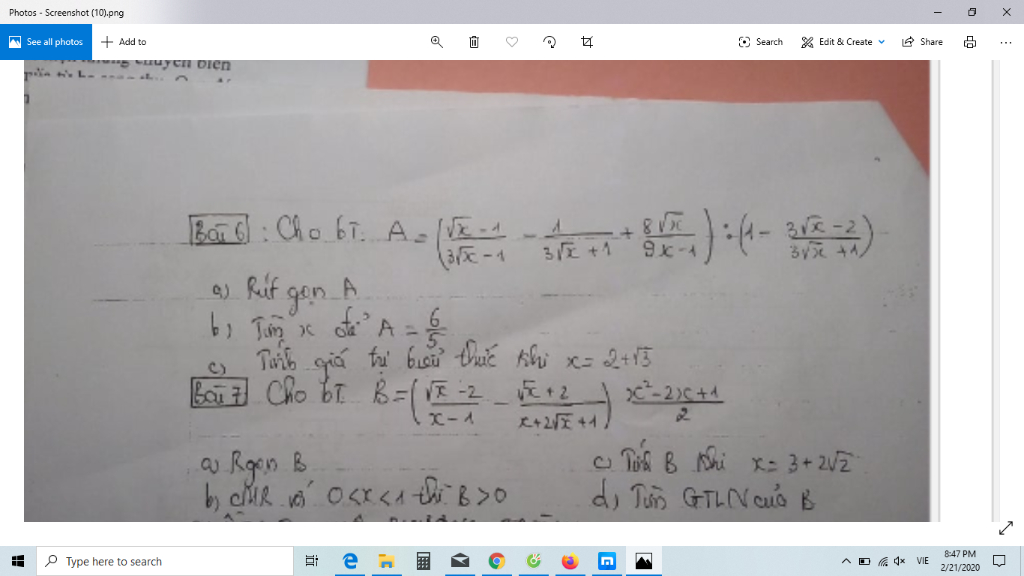 Photos - Screenshot (10).png
See all photos
Add to
Search
Edit & Create
Share
chuyển biến
Bài 6 : Cho bT. A = ( (√x - 1)/(3√x - 1) - 1/(3√x + 1) + 8√x/(9x - 1) ) : (1 - (3√x - 2)/(3√x + 1))
a) Rút gọn A
b) Tìm x để A = 6/5
c) Tính giá trị biểu thức khi x = 2+√3
Bài 7 Cho bT. B = ( (√x - 2)/(x - 1) - (√x + 2)/(x + 2√x + 1) ) (x² - 2x + 1)/2
a) Rgọn B
c) Tính B khi x = 3 + 2√2
b) CMR với 0 < x < 1 thì B > 0
d) Tìm GTLN của B
Type here to search
VIE
8:47 PM
2/21/2020